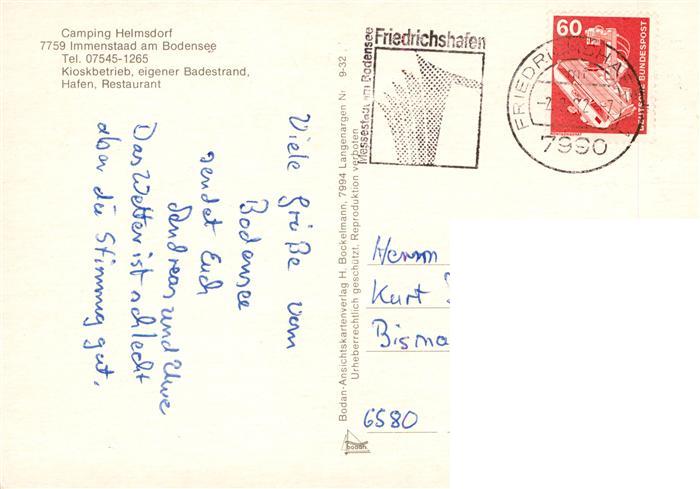 Camping Helmsdorf
7759 Immenstaad am Bodensee
Tel. 07545-1265
Kioskbetrieb, eigener Badestrand,
Hafen, Restaurant
Viele Grüße vom
Bodensee
sendet Euch
Andreas und Uwe
Das Wetter ist schlecht
aber die Stimmung gut.
Bodan-Ansichtskartenverlag H. Bockelmann, 7994 Langenargen Nr 9-32
Urheberrechtlich geschützt. Reproduktion verboten
bodan
Friedrichshafen
Messestadt am Bodensee
FRIEDRICHSHA
7990
60
DEUTSCHE BUNDESPOST
Herrn
Kurt
Bisma
6580